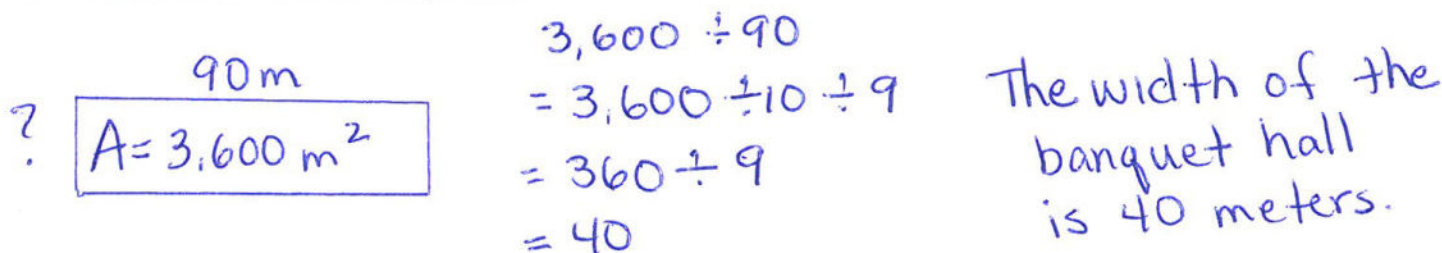 90m
?
A = 3,600 m²
3,600 ÷ 90
= 3,600 ÷ 10 ÷ 9
= 360 ÷ 9
= 40
The width of the
banquet hall
is 40 meters.